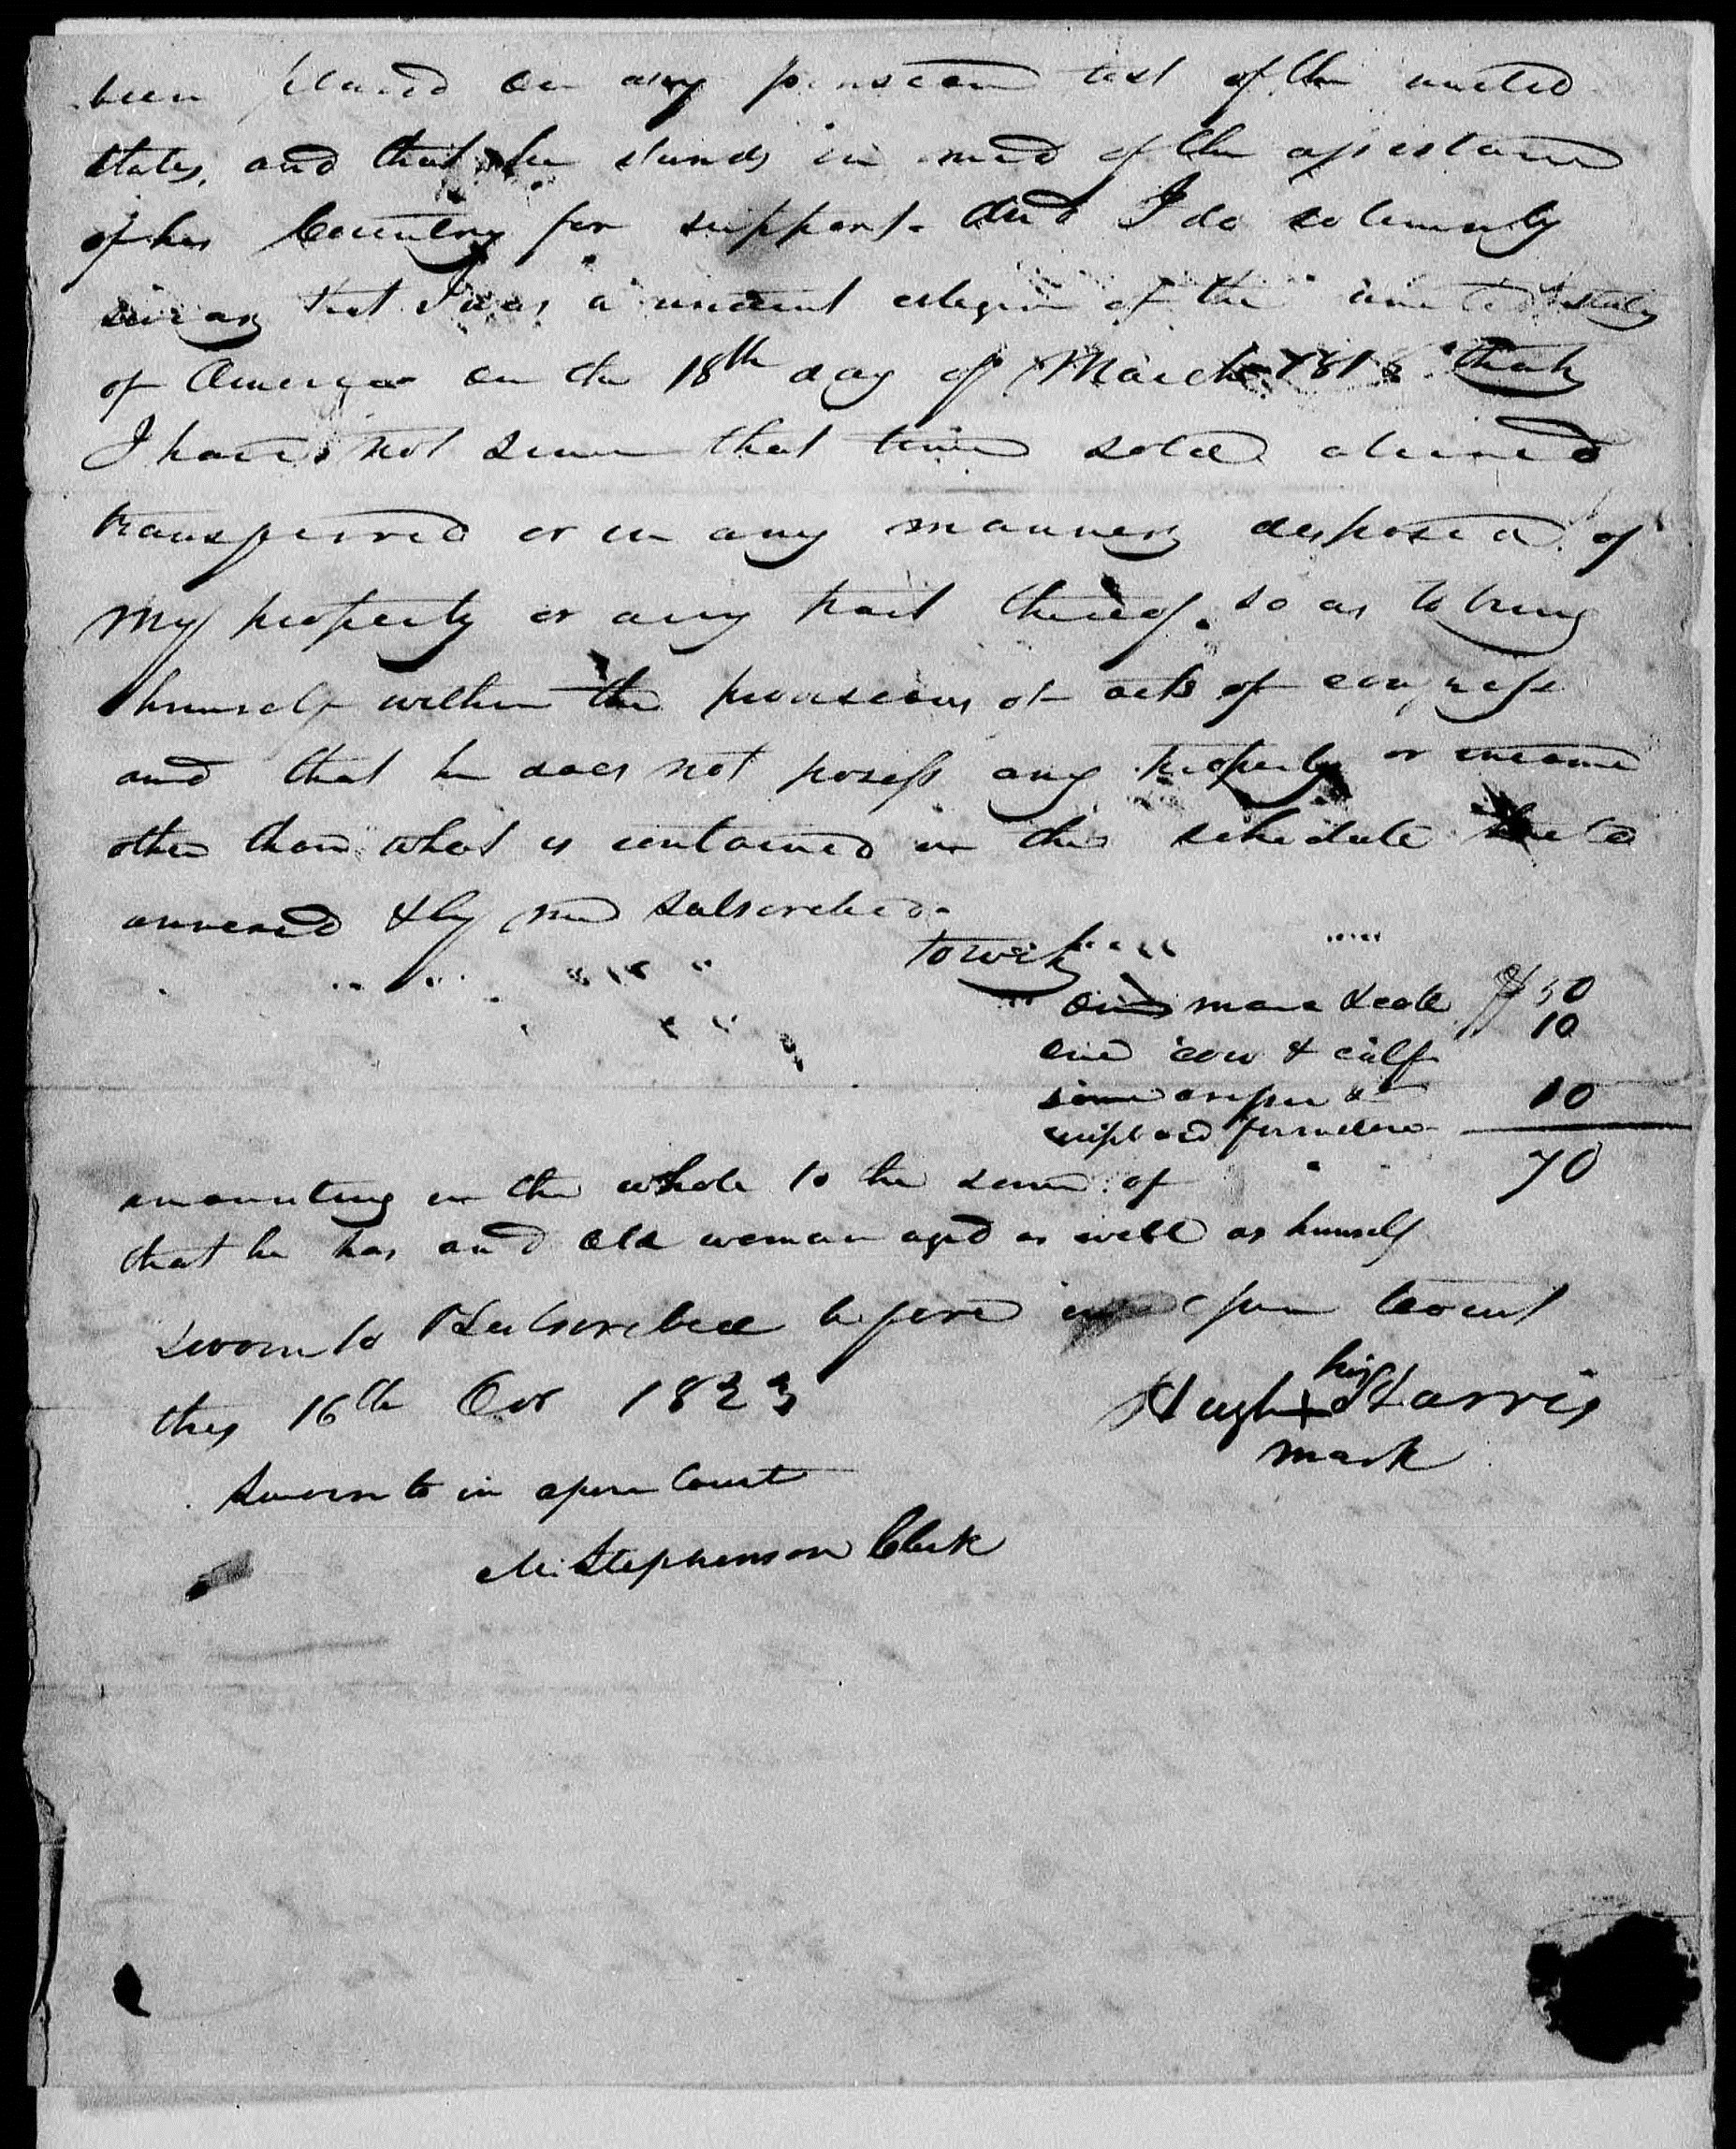 been placed on any pension list of the united
states, and that he stands in need of the assistance
of his Country for support. And I do solemnly
swear that I was a resident citizen of the united states
of America on the 18th day of March 1818 that
I have not since that time sold aliened
transferred or in any manner disposed of
my property or any part thereof. so as to bring
himself within the provisions of acts of congress
and that he does not posess any property or income
other than what is contained in the schedule hereto
annexed & by me subscribed.
towit
one mare & colt $50
one cow & calf 10
some &
cupboard furniture 10
70
amounting in the whole to the sum of
that he has and old woman aged as well as himself
sworn to & subscribed before in open Court
this 16th Oct 1823
Hugh his + Harris
mark
Sworn to in open Court
M. Stephenson Clerk